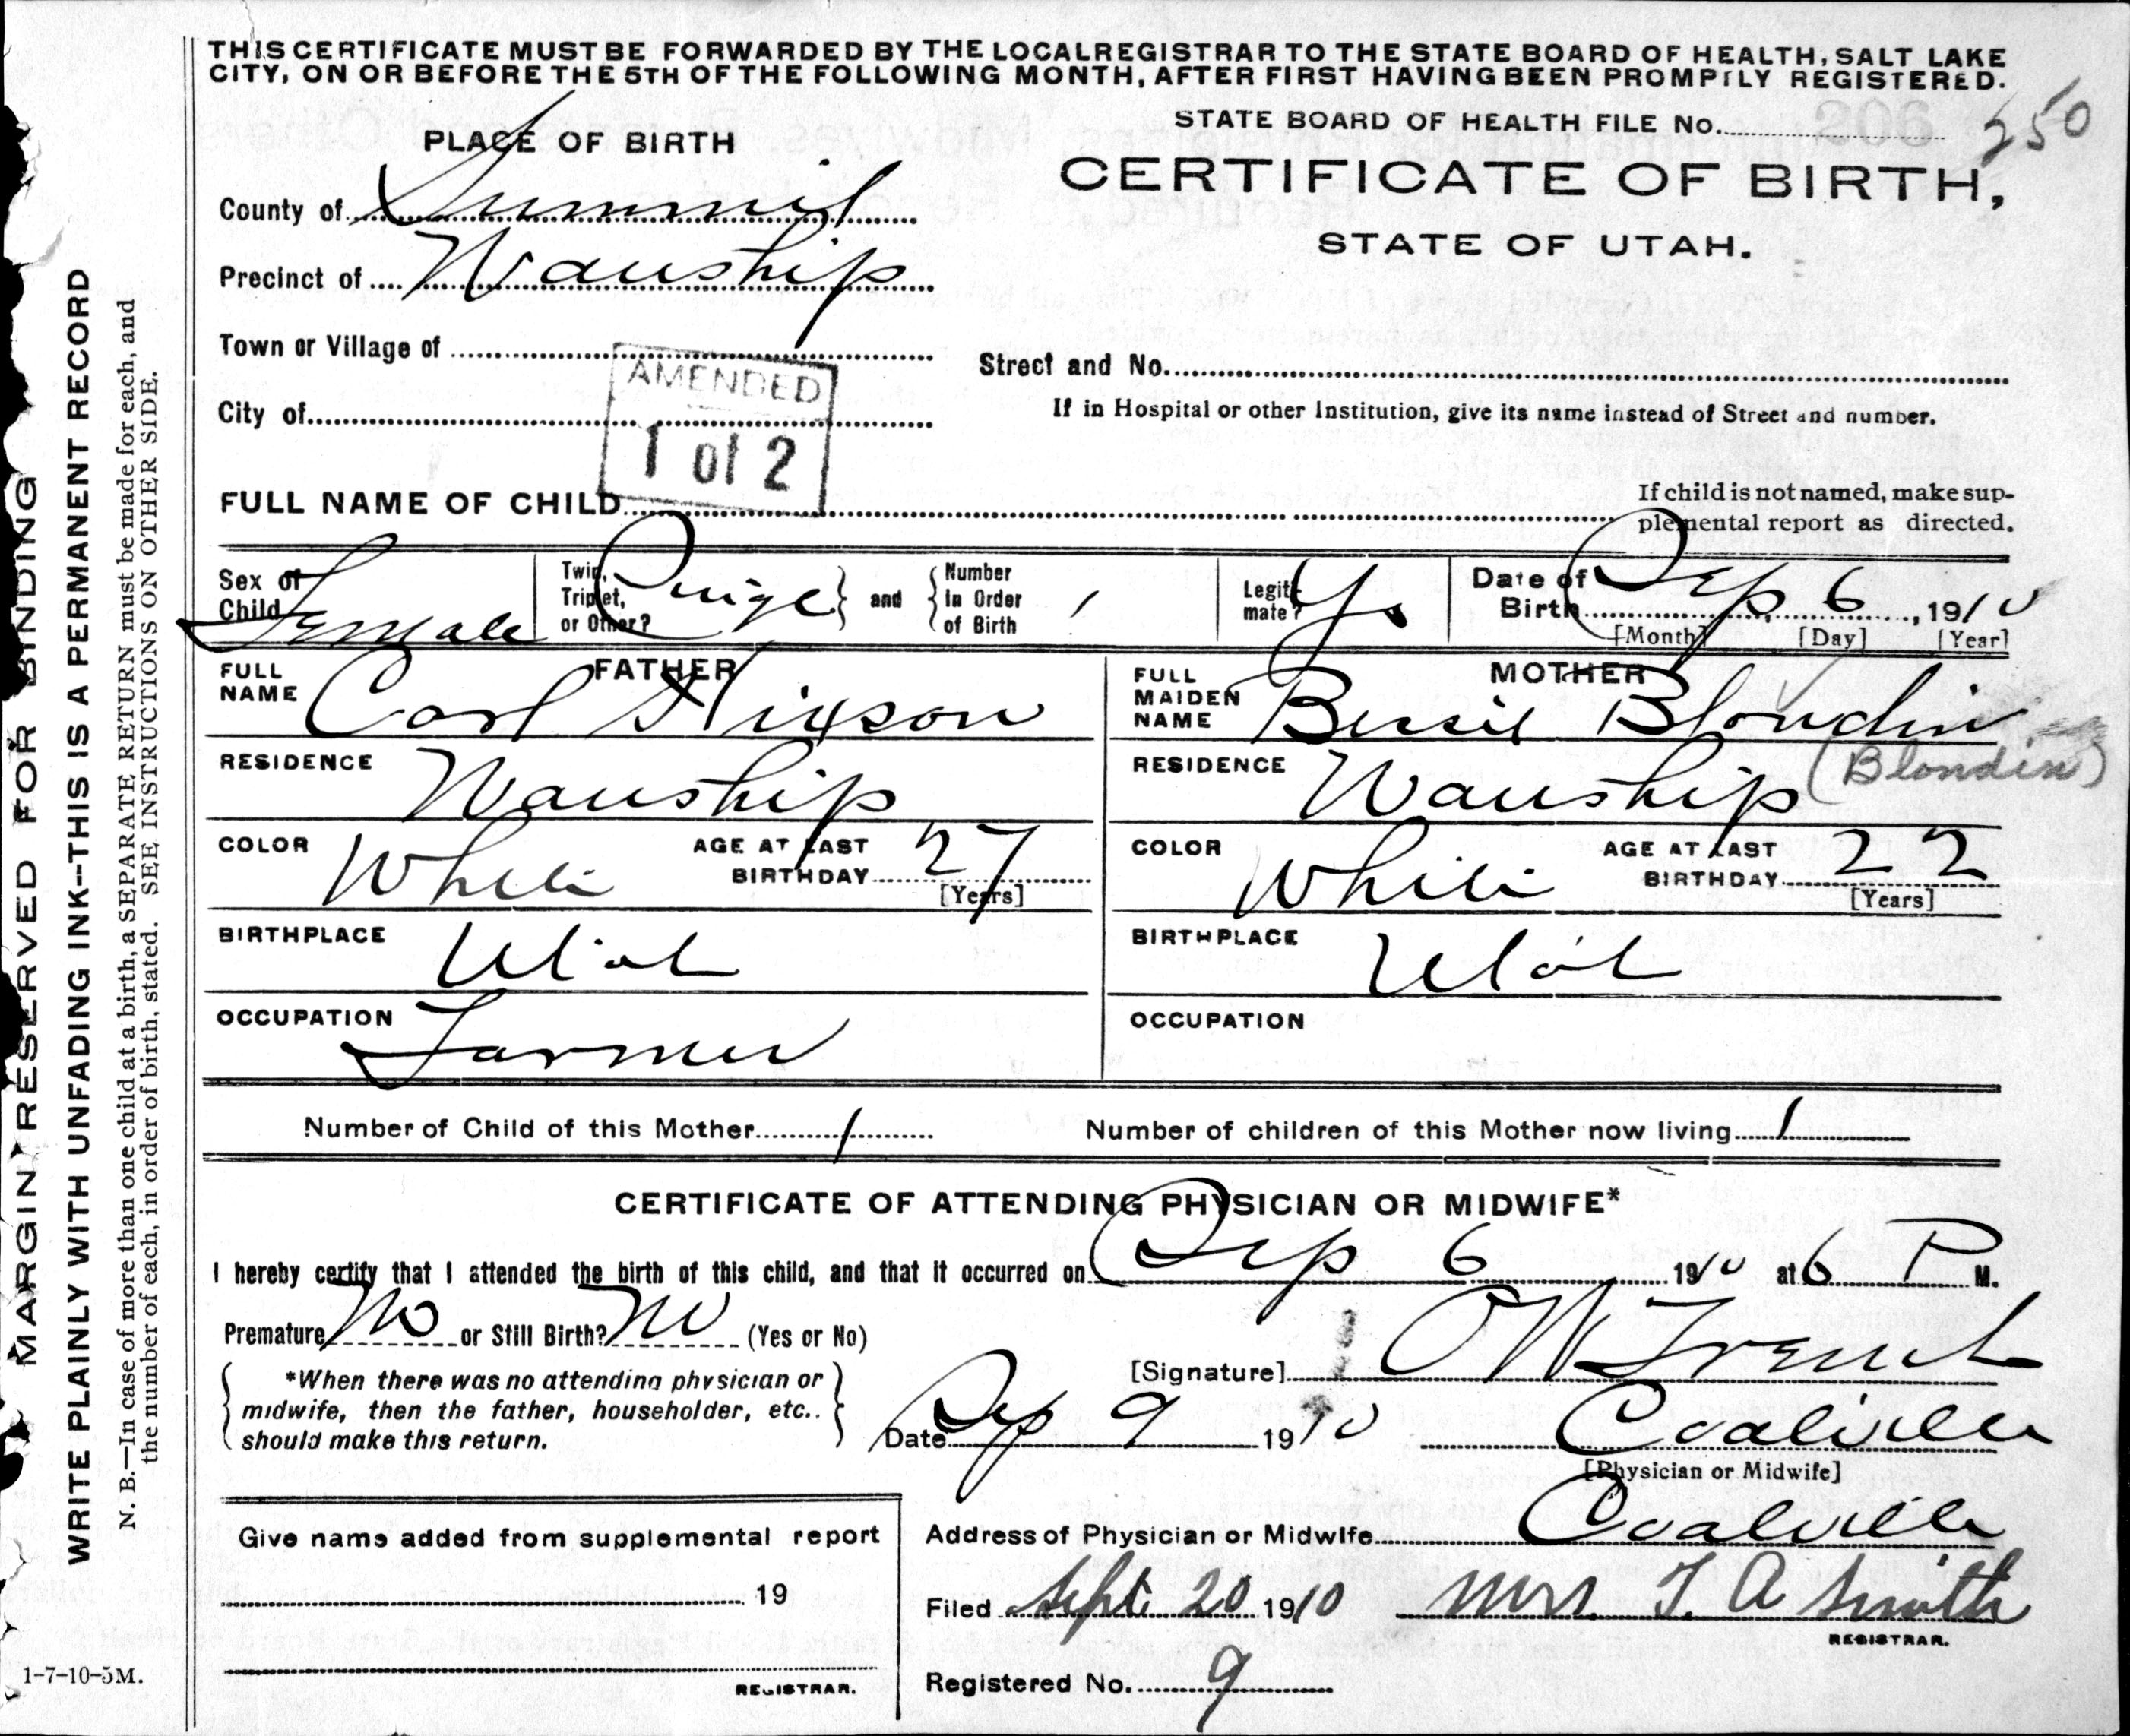 THIS CERTIFICATE MUST BE FORWARDED BY THE LOCAL REGISTRAR TO THE STATE BOARD OF HEALTH, SALT LAKE
CITY, ON OR BEFORE THE 5TH OF THE FOLLOWING MONTH, AFTER FIRST HAVING BEEN PROMPTLY REGISTERED.
PLACE OF BIRTH
County of Summit
Precinct of Wanship
Town or Village of
City of
AMENDED
1 of 2
STATE BOARD OF HEALTH FILE No. 250
CERTIFICATE OF BIRTH,
STATE OF UTAH.
Street and No.
If in Hospital or other Institution, give its name instead of Street and number.
FULL NAME OF CHILD
If child is not named, make sup-
plemental report as directed.
Sex of Child Female
Twin, Triplet, or Other? Single and Number In Order of Birth 1
Legiti mate? Yes
Date of Birth Sep 6, 1910
[Month] [Day] [Year]
FATHER
FULL NAME Carl Hixson
RESIDENCE Wanship
COLOR White AGE AT LAST BIRTHDAY 27
[Years]
BIRTHPLACE Utah
OCCUPATION Farmer
MOTHER
FULL MAIDEN NAME Bessie Blondin
(Blondin)
RESIDENCE Wanship
COLOR White AGE AT LAST BIRTHDAY 22
[Years]
BIRTHPLACE Utah
OCCUPATION
Number of Child of this Mother 1
Number of children of this Mother now living 1
CERTIFICATE OF ATTENDING PHYSICIAN OR MIDWIFE*
I hereby certify that I attended the birth of this child, and that it occurred on Sep 6 1910 at 6 P M.
Premature No or Still Birth? No (Yes or No)
*When there was no attending physician or
midwife, then the father, householder, etc..
should make this return.
[Signature] O W French
Date Sep 9 1910 Coalville
[Physician or Midwife]
Give name added from supplemental report
19
REGISTRAR.
Address of Physician or Midwife Coalville
Filed Sept. 20 1910 Mrs. T. A Smith
REGISTRAR.
Registered No. 9
MARGIN RESERVED FOR BINDING
WRITE PLAINLY WITH UNFADING INK--THIS IS A PERMANENT RECORD
N. B.—In case of more than one child at a birth, a SEPARATE RETURN must be made for each, and
the number of each, in order of birth, stated. SEE INSTRUCTIONS ON OTHER SIDE.
1-7-10-5M.